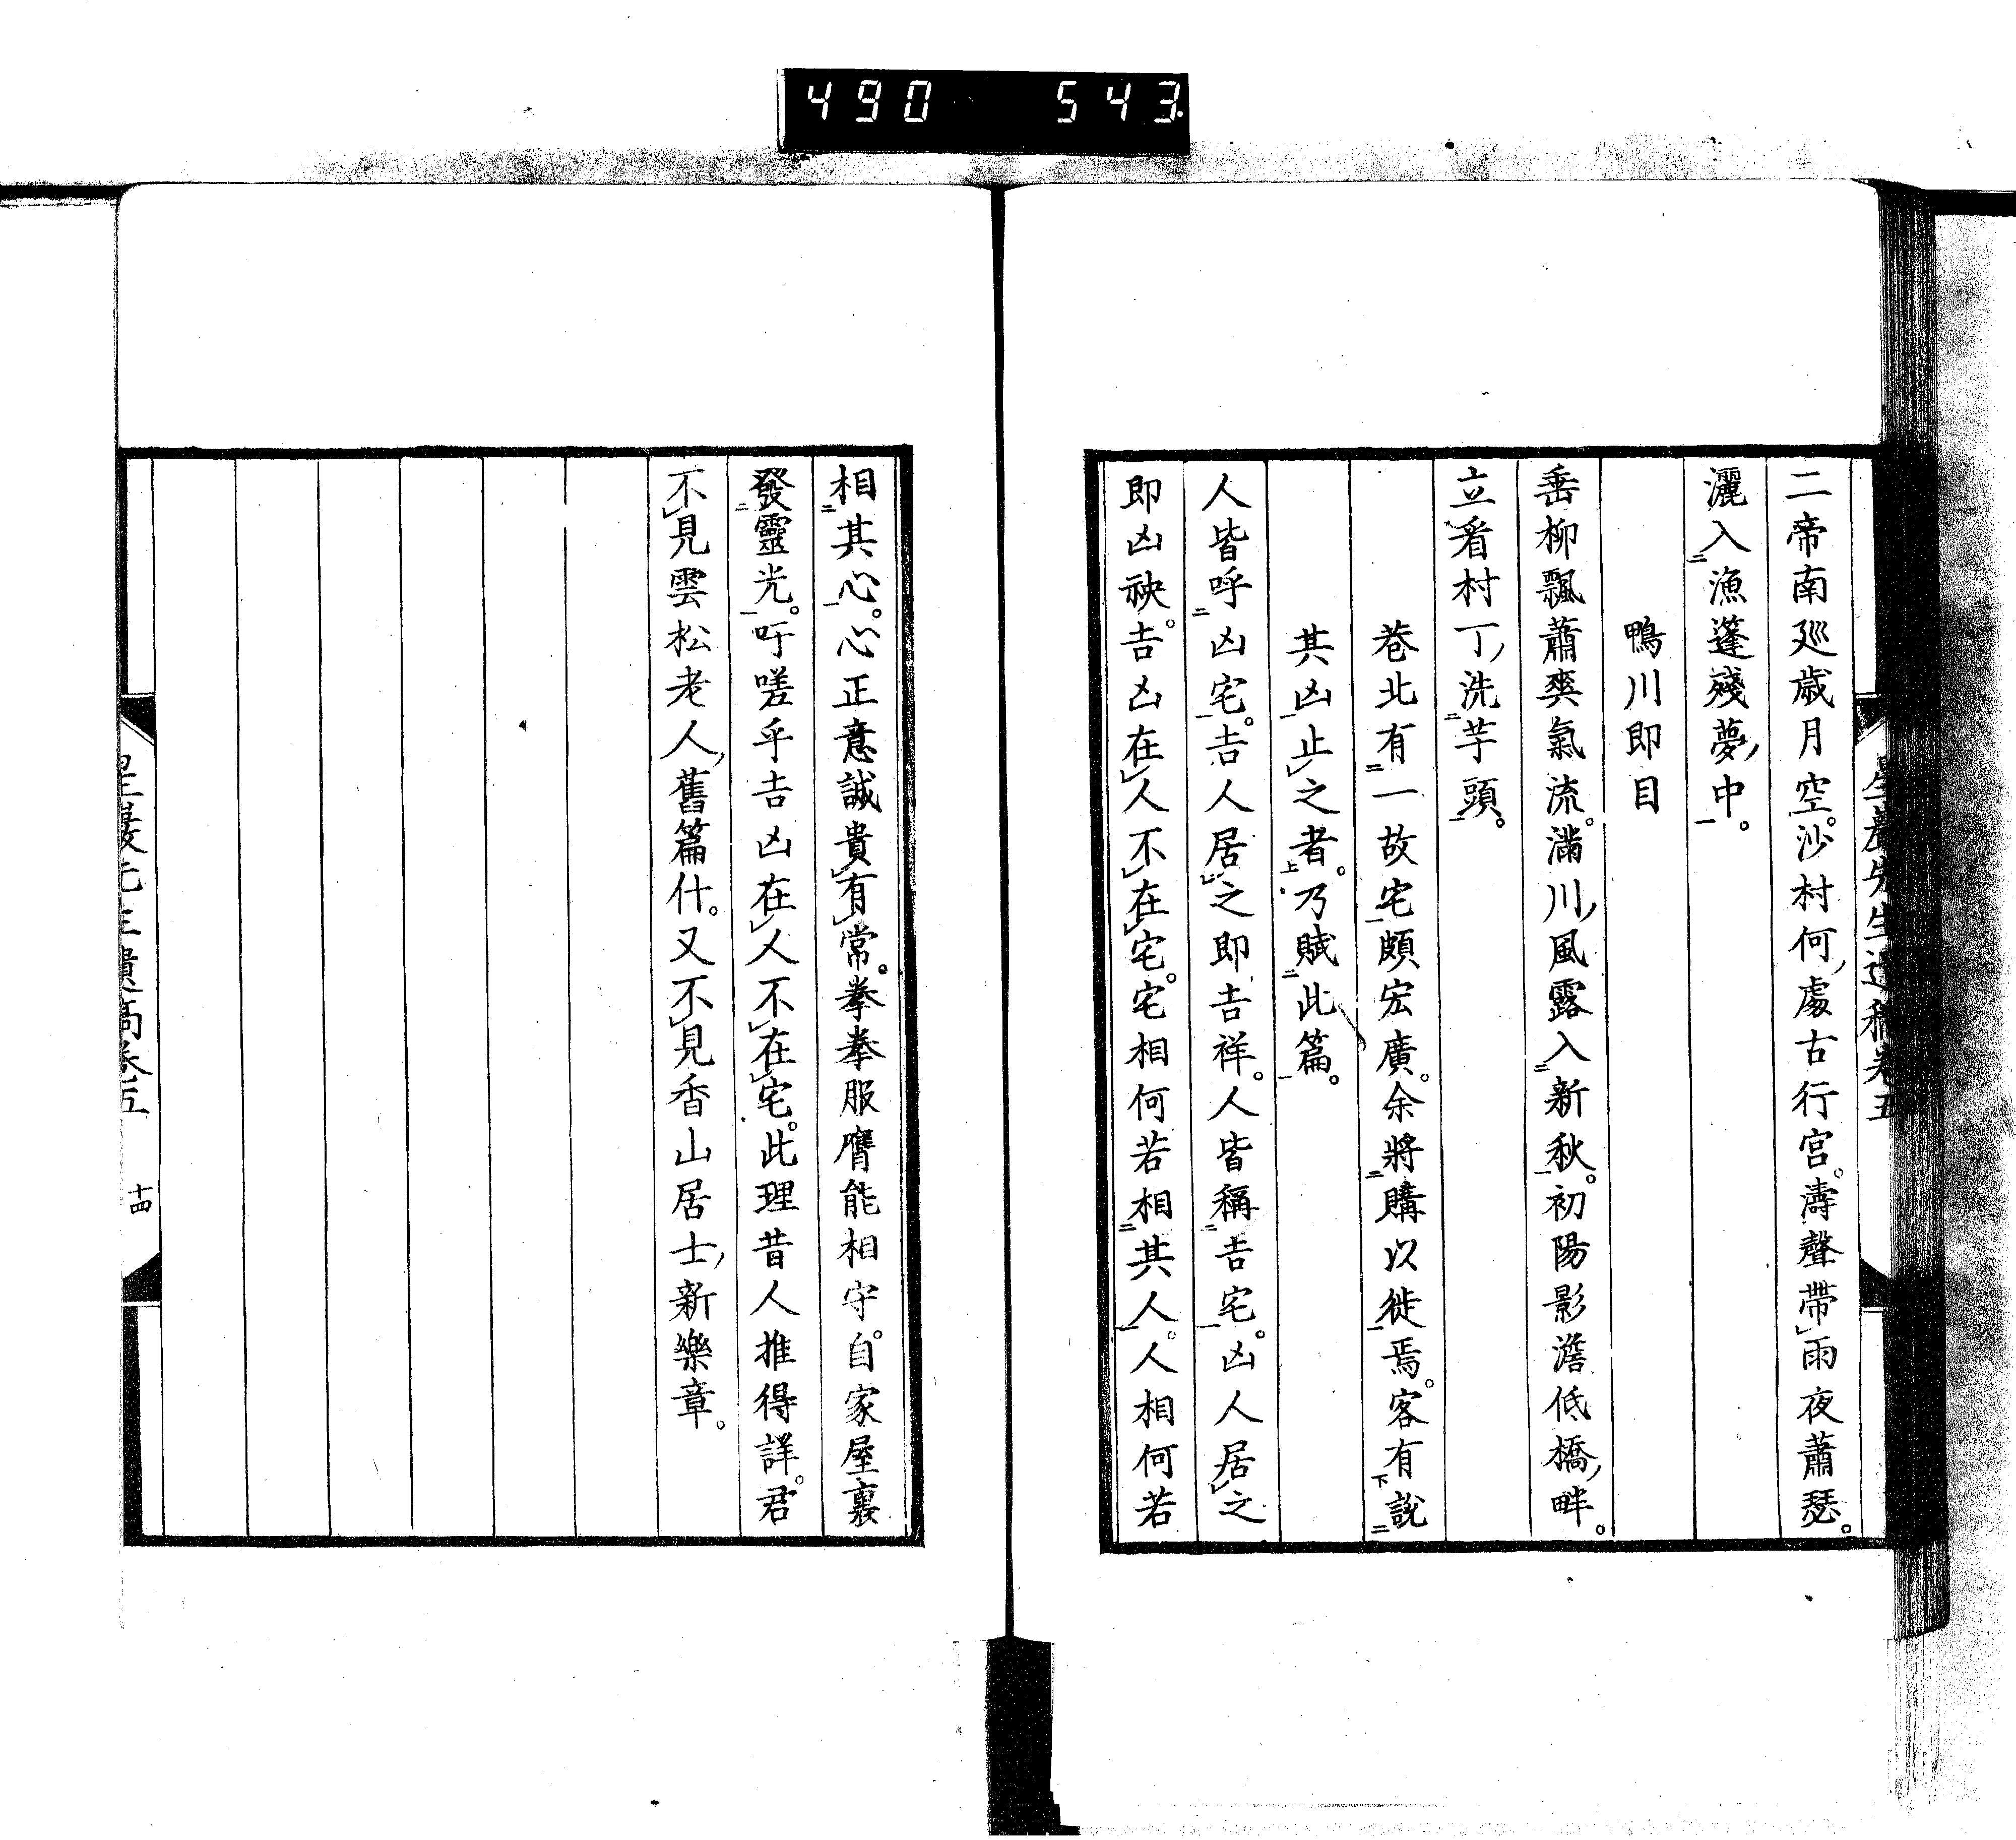 490 543
星巖先生遺稿卷五
二帝南巡歳月空。沙村何處古行宮。濤聲帶雨夜蕭瑟。
灑入漁蓬殘夢中。
鴨川即目
垂柳飄蕭爽氣流。滿川風露入新秋。初陽影澹低橋畔。
立看村丁洗芋頭。
巷北有一故宅頗宏廣。余將購以徙焉。客有說
其凶止之者。乃賦此篇。
人皆呼凶宅。吉人居之即吉祥。人皆稱吉宅。凶人居之
即凶殃。吉凶在人不在宅。宅相何若相其人。人相何若
相其心。心正意誠貴有常。拳拳服膺能相守。自家屋裏
發靈光。吁嗟乎吉凶在人不在宅。此理昔人推得詳。君
不見雲松老人舊篇什。又不見香山居士新樂章。
星巖先生遺稿卷五 十四